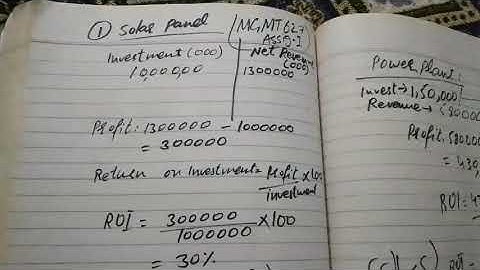 ① Solar Panel
MGMT627
ASSG.I
Investment (000)
10,000,00
Net Revenue
(000)
1300000
Profit: 1300000 - 1000000
= 300000
Return on Investment = Profit x100
investment
ROI = 300000 x100
1000000
= 30%
Power Plant:
Invest→ 1,50,000
Revenue →
Profit:
ROI =